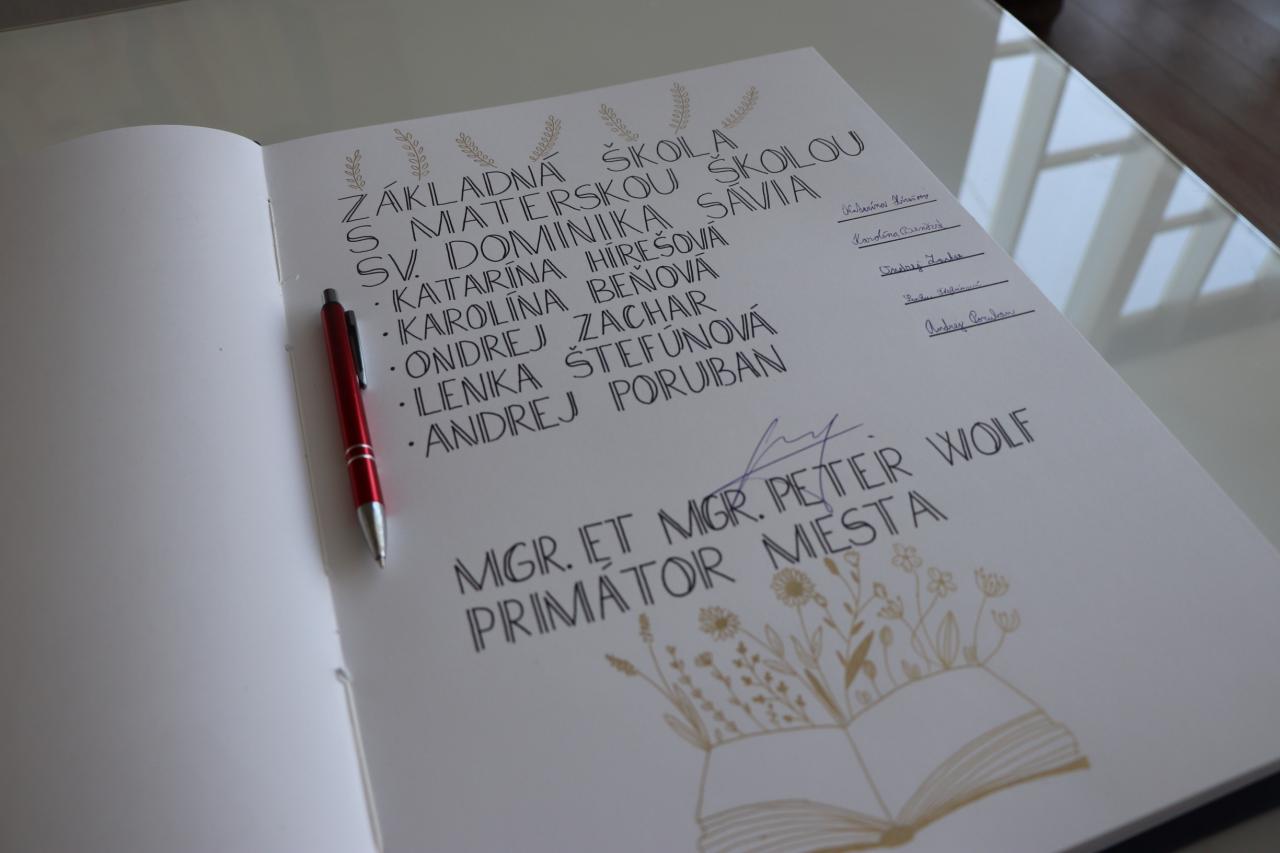 ZÁKLADNÁ ŠKOLA
S MATERSKOU ŠKOLOU
SV. DOMINIKA SAVIA
· KATARÍNA HÍREŠOVÁ
· KAROLÍNA BEŇOVÁ
· ONDREJ ZACHAR
· LENKA ŠTEFÚNOVÁ
· ANDREJ PORUBAN
Katarína Hírešová
Karolína Beňová
Ondrej Zachar
Andrej Poruban
MGR. ET MGR. PETER WOLF
PRIMÁTOR MESTA